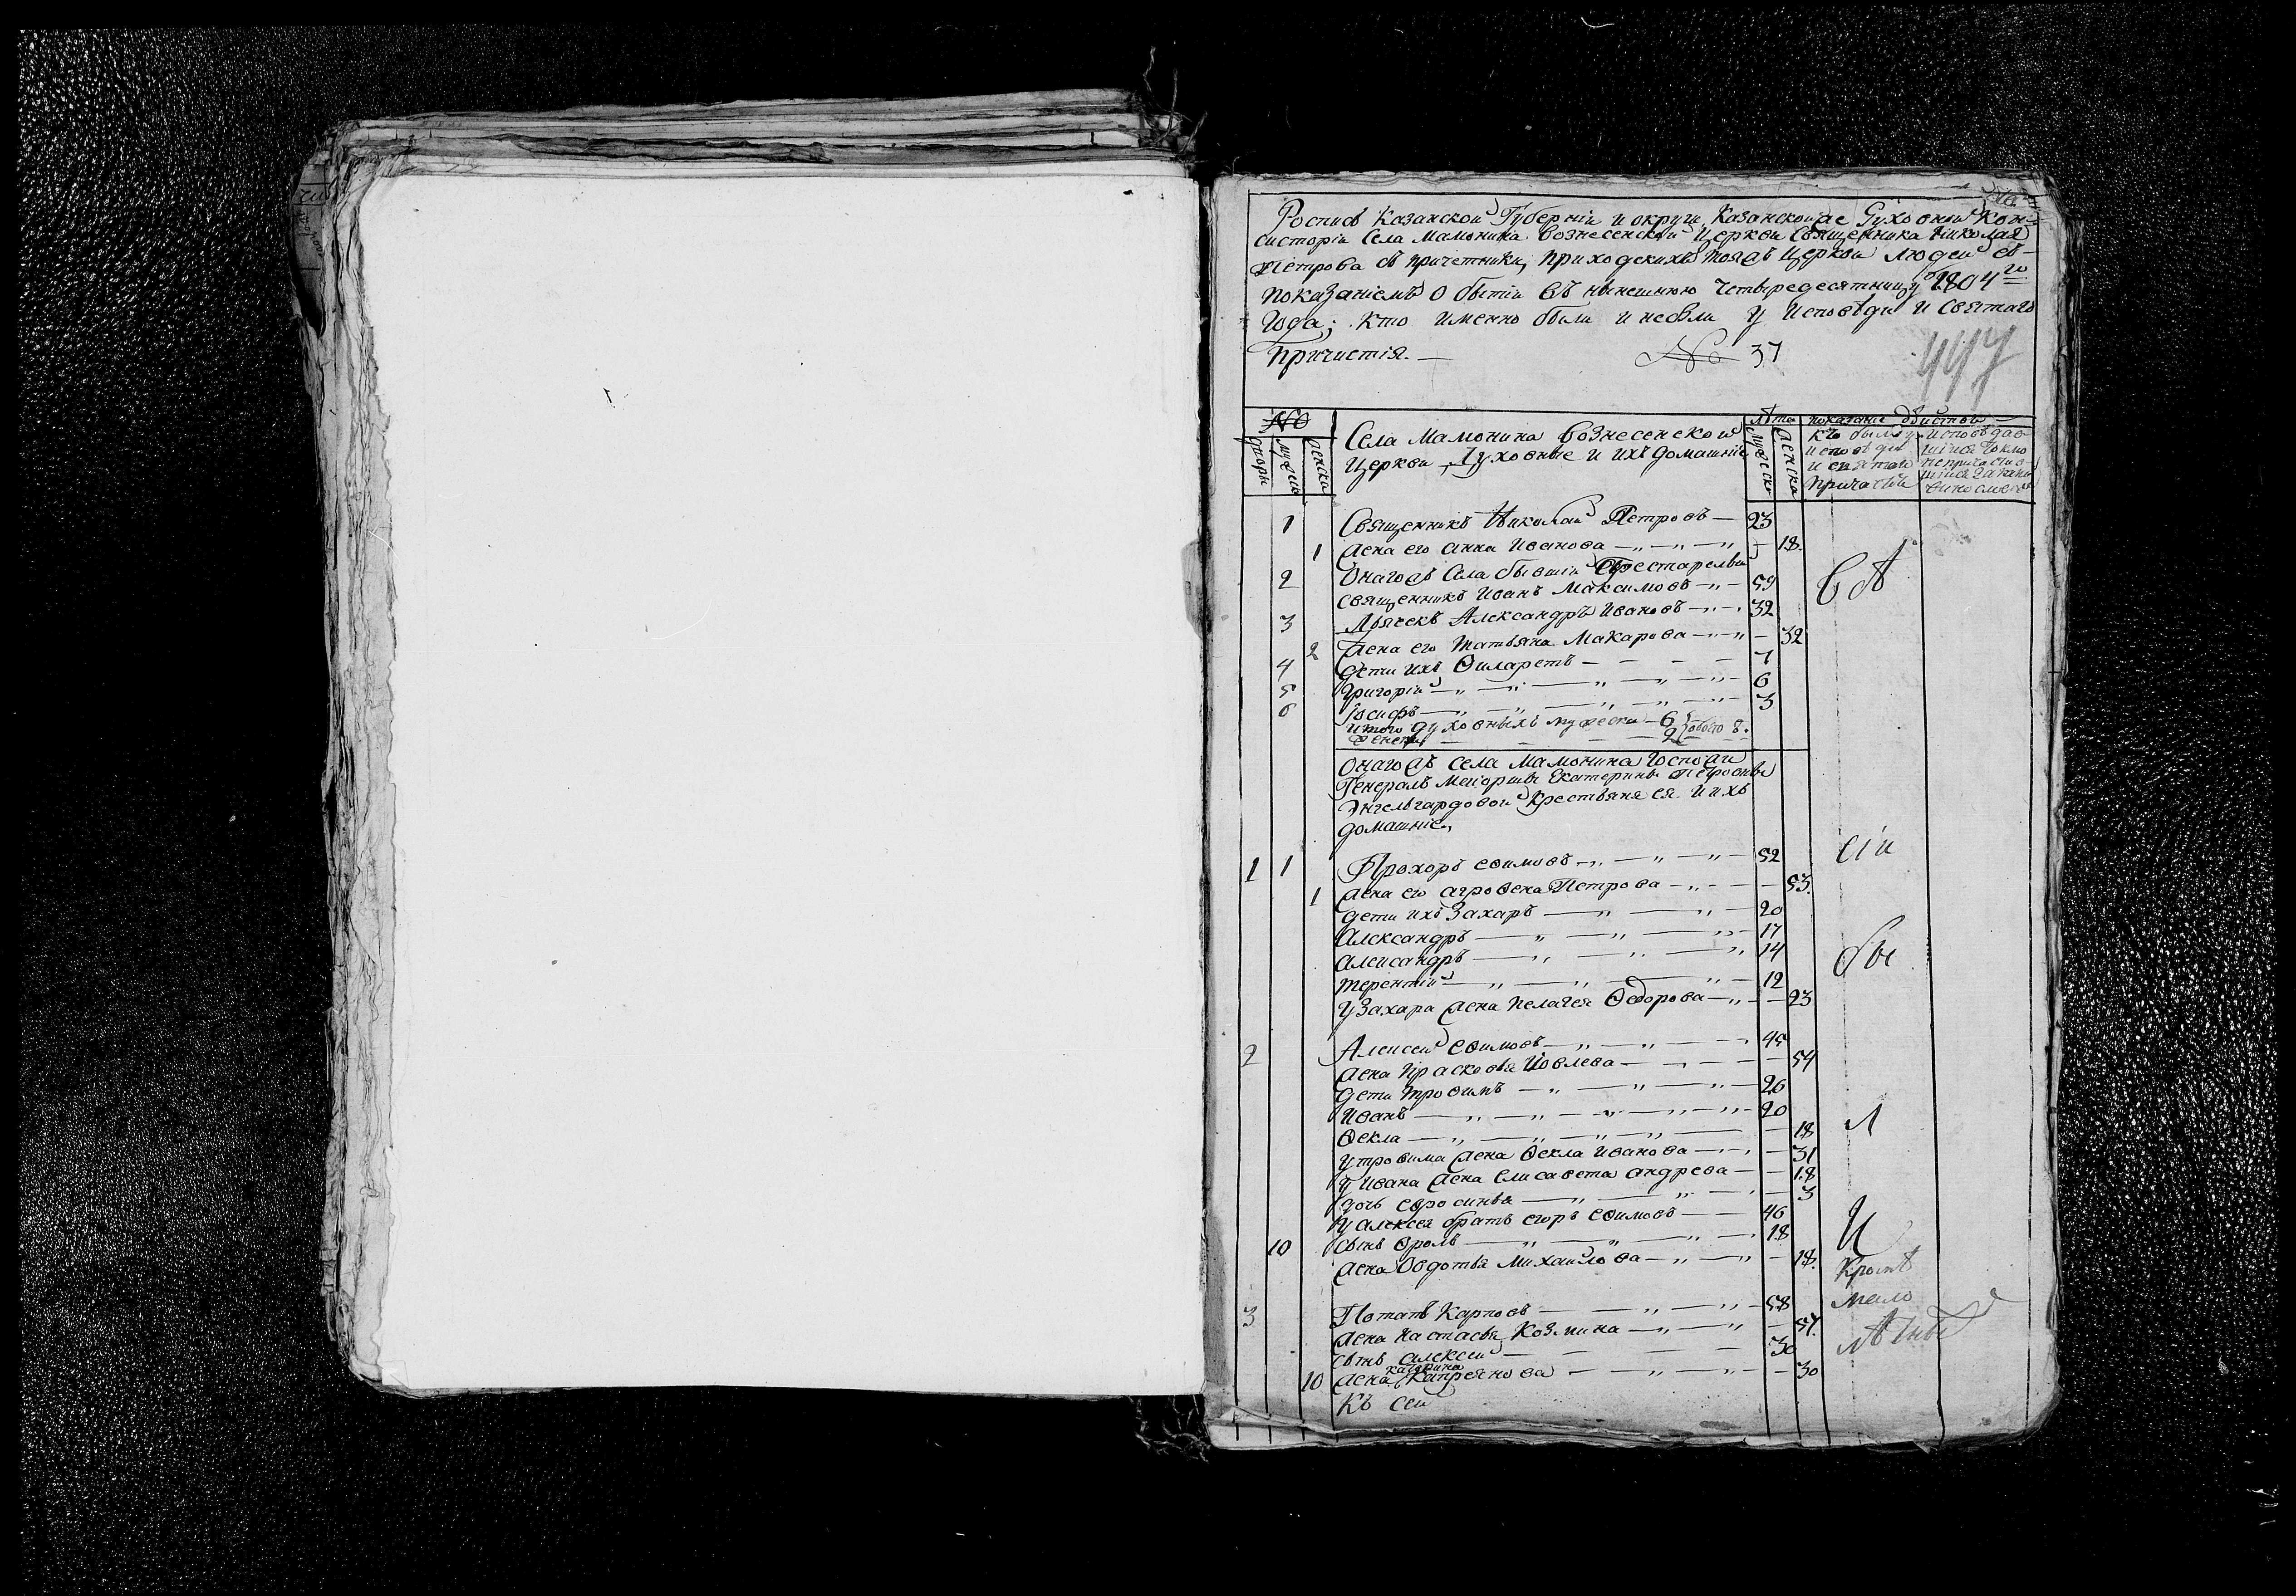 Роспись Казанской Губерніи и округи, Казанскойже Духовной Кон-
систоріи Села Мамонина Вознесенской Церкви Священника Николая
Петрова съ причетники, приходскихъ тояжъ Церкви людей съ-
показаніемъ о бытіи въ нынешнюю четыредесятницу 1804го
года; кто имянно были и небыли у исповѣди и святаго
причистія.—
No 37
447
No
дворы
мужеска
женска
Села Мамонина Вознесенской
Церкви Духовные и ихъ домашніе
лѣта
мужеска
женска
показаніе дѣйства
кто былъ у
исповѣди
и святаго
причастія
исповѣдав
шіися токмо
непричастив
шіися
1 Священникъ Николай Петровъ — 23
1 Жена его Анна Иванова — 18.
2 Онагожъ Села бывшій престарелый
священникъ Иванъ Максимовъ — 59
3 Дьячекъ Александръ Ивановъ — 32
2 Жена его Татьяна Макарова — 32
4 Дети ихъ Филаретъ — 7
5 Григорій — 6
6 Іосифъ — 3
итого духовныхъ мужеска — 6
женска — 2 обоего 8.
всѣ
Онагожъ села Мамонина Госпожи
Генералъ Маіорши Екатерины Петровны
Энгельгардовой Крестьяне ея и ихъ
домашніе,
1 1 Прохоръ Ефимовъ — 52
1 Жена его Агрофена Петрова — 53.
Дети ихъ Захаръ — 20
Александръ — 17
Александръ — 14
Терентій — 12
У Захара жена Пелагея Федорова — 23
сіи
бы
2 Алексей Ефимовъ — 45
Жена Прасковья Иовлева — 54
Дети Трофимъ — 26
Иванъ — 20
Фекла — 18
У трофима жена Фекла Иванова — 31
У Ивана жена Елисавета Андреева — 18
дочь Ефросинья — 3
У Алексея братъ Егоръ Ефимовъ — 46
10 Сынъ Фролъ — 18
Жена Овдотья Михайлова — 18.
л
и
Кромѣ
мало
лѣтныхъ
3 Потапъ Карповъ — 58
Жена Настасья Козмина — 57.
Сынъ Алексей — 30
Катерина
10 Жена Капреянова — 30
Къ сей